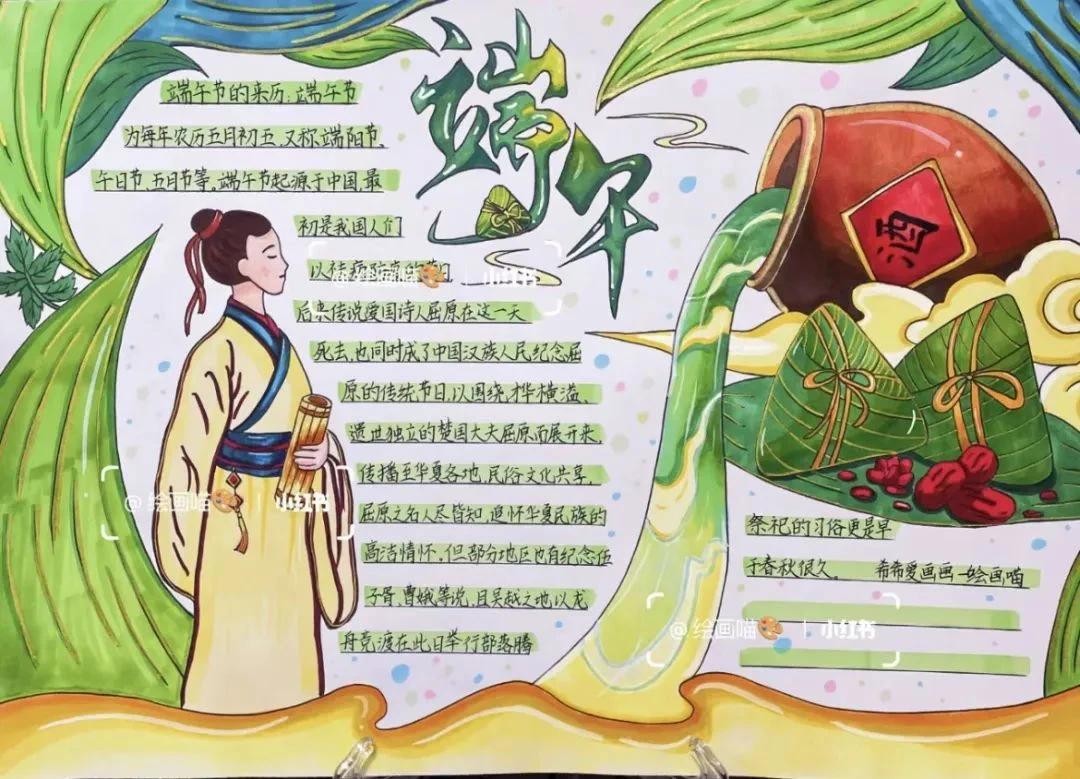 端午
端午节的来历:端午节
为每年农历五月初五,又称端阳节,
午日节,五日节等,端午节起源于中国,最
初是我国人们
以祛病防疫的节日
后来传说爱国诗人屈原在这一天
死去,也同时成了中国汉族人民纪念屈
原的传统节日,以围绕才华横溢、
遗世独立的楚国大夫屈原而展开来,
传播至华夏各地,民俗文化共享,
屈原之名人尽皆知,追怀华夏民族的
高洁情怀。但部分地区也有纪念伍
子胥、曹娥等说,且吴越之地以龙
舟竞渡在此日举行部落腾
酒
祭祀的习俗更是早
于春秋很久。 希希爱画画—绘画喵
@绘画喵 | 小红书
@绘画喵 | 小红书
@绘画喵 | 小红书